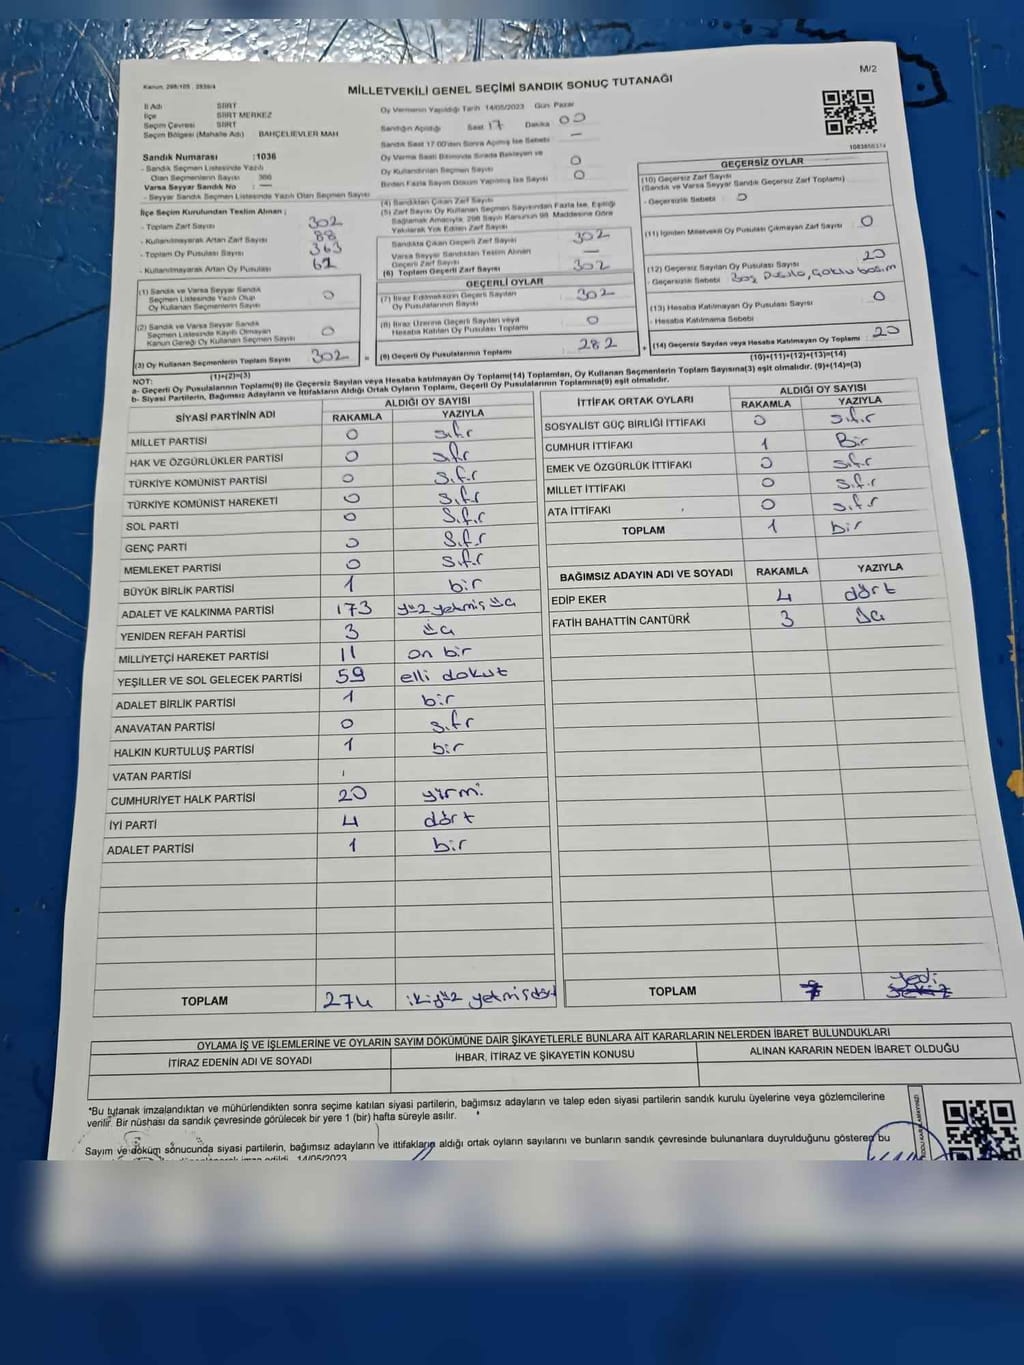 Kanun: 298/105 , 2839/4
MİLLETVEKİLİ GENEL SEÇİMİ SANDIK SONUÇ TUTANAĞI
M/2
İl Adı SİİRT
İlçe SİİRT MERKEZ
Seçim Çevresi SİİRT
Seçim Bölgesi (Mahalle Adı) BAHÇELİEVLER MAH
Sandık Numarası :1036
- Sandık Seçmen Listesinde Yazılı
Olan Seçmenlerin Sayısı
Varsa Seyyar Sandık No
- Seyyar Sandık Seçmen Listesinde Yazılı Olan Seçmen Sayısı
İlçe Seçim Kurulundan Teslim Alınan ;
- Toplam Zarf Sayısı 302
- Kullanılmayarak Artan Zarf Sayısı 88
- Toplam Oy Pusulası Sayısı 363
- Kullanılmayarak Artan Oy Pusulası 61
(1) Sandık ve Varsa Seyyar Sandık
Seçmen Listesinde Yazılı Olup
Oy Kullanan Seçmenlerin Sayısı 0
(2) Sandık ve Varsa Seyyar Sandık
Seçmen Listesinde Kayıtlı Olmayan
Kanun Gereği Oy Kullanan Seçmen Sayısı 0
(3) Oy Kullanan Seçmenlerin Toplam Sayısı 302
(1)+(2)=(3)
Oy Vermenin Yapıldığı Tarih 14/05/2023 Gün Pazar
Sandığın Açıldığı Saat 17 Dakika 00
Sandık Saat 17:00'den Sonra Açılmış İse Sebebi —
Oy Verme Saati Bitiminde Sırada Bekleyen ve
Oy Kullandırılan Seçmen Sayısı 0
Birden Fazla Sayım Döküm Yapılmış İse Sayısı 0
(4) Sandıktan Çıkan Zarf Sayısı
(5) Zarf Sayısı Oy Kullanan Seçmen Sayısından Fazla İse, Eşitliği
Sağlamak Amacıyla, 298 Sayılı Kanunun 98. Maddesine Göre
Yakılarak Yok Edilen Zarf Sayısı
Sandıkta Çıkan Geçerli Zarf Sayısı 302
Varsa Seyyar Sandıktan Teslim Alınan
Geçerli Zarf Sayısı —
(6) Toplam Geçerli Zarf Sayısı 302
GEÇERLİ OYLAR
(7) İtiraz Edilmeksizin Geçerli Sayılan
Oy Pusulalarının Sayısı 302
(8) İtiraz Üzerine Geçerli Sayılan veya
Hesaba Katılan Oy Pusulası Toplamı 0
(9) Geçerli Oy Pusulalarının Toplamı 282
1083856374
GEÇERSİZ OYLAR
(10) Geçersiz Zarf Sayısı
(Sandık ve Varsa Seyyar Sandık Geçersiz Zarf Toplamı)
- Geçersizlik Sebebi 0
(11) İçinden Milletvekili Oy Pusulası Çıkmayan Zarf Sayısı 0
(12) Geçersiz Sayılan Oy Pusulası Sayısı 20
- Geçersizlik Sebebi
(13) Hesaba Katılmayan Oy Pusulası Sayısı 0
- Hesaba Katılmama Sebebi
(14) Geçersiz Sayılan veya Hesaba Katılmayan Oy Toplamı 20
(10)+(11)+(12)+(13)=(14)
NOT:
a- Geçerli Oy Pusulalarının Toplamı(9) ile Geçersiz Sayılan veya Hesaba katılmayan Oy Toplamı(14) Toplamları, Oy Kullanan Seçmenlerin Toplam Sayısına(3) eşit olmalıdır. (9)+(14)=(3)
b- Siyasi Partilerin, Bağımsız Adayların ve İttifakların Aldığı Ortak Oyların Toplamı, Geçerli Oy Pusulalarının Toplamına(9) eşit olmalıdır.
SİYASİ PARTİNİN ADI ALDIĞI OY SAYISI
RAKAMLA YAZIYLA
MİLLET PARTİSİ 0 sıfır
HAK VE ÖZGÜRLÜKLER PARTİSİ 0 sıfır
TÜRKİYE KOMÜNİST PARTİSİ 0 sıfır
TÜRKİYE KOMÜNİST HAREKETİ 0 sıfır
SOL PARTİ 0 sıfır
GENÇ PARTİ 0 sıfır
MEMLEKET PARTİSİ 0 sıfır
BÜYÜK BİRLİK PARTİSİ 1 bir
ADALET VE KALKINMA PARTİSİ 173 yüz yetmiş üç
YENİDEN REFAH PARTİSİ 3 üç
MİLLİYETÇİ HAREKET PARTİSİ 11 on bir
YEŞİLLER VE SOL GELECEK PARTİSİ 59 elli dokuz
ADALET BİRLİK PARTİSİ 1 bir
ANAVATAN PARTİSİ 0 sıfır
HALKIN KURTULUŞ PARTİSİ 1 bir
VATAN PARTİSİ
CUMHURİYET HALK PARTİSİ 20 yirmi
İYİ PARTİ 4 dört
ADALET PARTİSİ 1 bir
TOPLAM 274 ikiyüz yetmişdört
İTTİFAK ORTAK OYLARI ALDIĞI OY SAYISI
RAKAMLA YAZIYLA
SOSYALİST GÜÇ BİRLİĞİ İTTİFAKI 0 sıfır
CUMHUR İTTİFAKI 1 Bir
EMEK VE ÖZGÜRLÜK İTTİFAKI 0 sıfır
MİLLET İTTİFAKI 0 sıfır
ATA İTTİFAKI 0 sıfır
TOPLAM 1 bir
BAĞIMSIZ ADAYIN ADI VE SOYADI RAKAMLA YAZIYLA
EDİP EKER 4 dört
FATİH BAHATTİN CANTÜRK 3 üç
TOPLAM 7 yedi
OYLAMA İŞ VE İŞLEMLERİNE VE OYLARIN SAYIM DÖKÜMÜNE DAİR ŞİKAYETLERLE BUNLARA AİT KARARLARIN NELERDEN İBARET BULUNDUKLARI
İTİRAZ EDENİN ADI VE SOYADI İHBAR, İTİRAZ VE ŞİKAYETİN KONUSU ALINAN KARARIN NEDEN İBARET OLDUĞU
*Bu tutanak imzalandıktan ve mühürlendikten sonra seçime katılan siyasi partilerin, bağımsız adayların ve talep eden siyasi partilerin sandık kurulu üyelerine veya gözlemcilerine
verilir. Bir nüshası da sandık çevresinde görülecek bir yere 1 (bir) hafta süreyle asılır.
Sayım ve döküm sonucunda siyasi partilerin, bağımsız adayların ve ittifakların aldığı ortak oyların sayılarını ve bunların sandık çevresinde bulunanlara duyrulduğunu gösteren bu